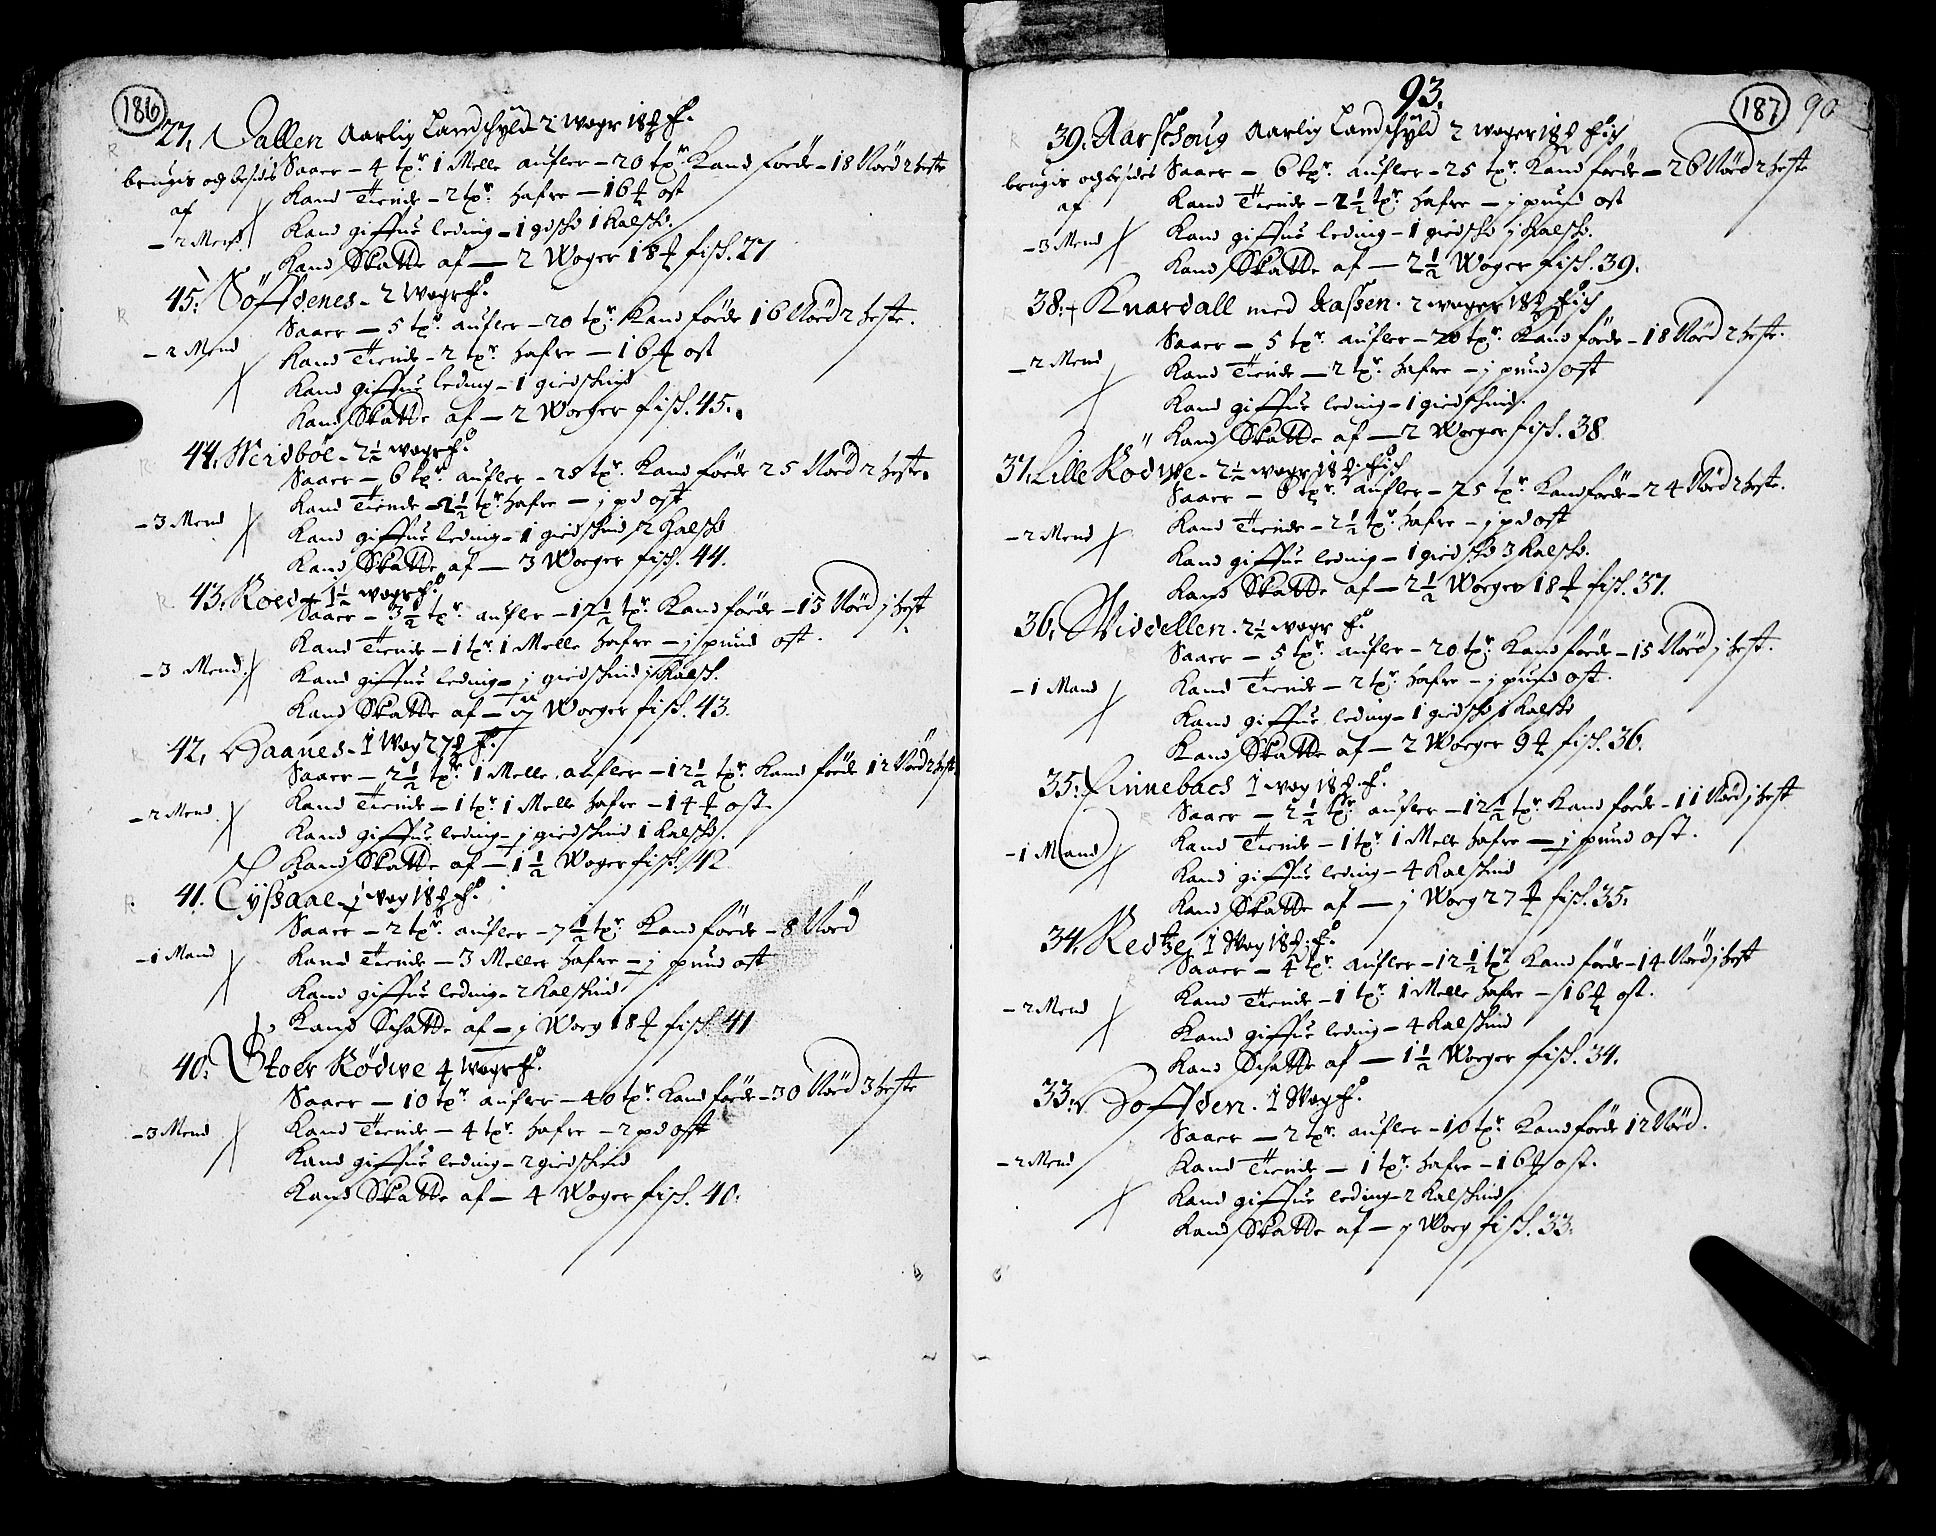 186
27. Dallen Aarlig Landschyld 2 wogr 18 ℔ f.
brugis og besidis Saaer – 4 tpr. 1 Melle aufler – 20 tpr. Kand förde – 18 Nöd 2 heste
af Kand Tiende – 2 tpr. hafre – 16 ℔ ost
– 2 Mend. Kand giffue leding – 1 gdschd 1 Kalschd.
Kand Skatte af – 2 Woger 18 ℔ fisch. 27
45. Söffdenes – 2 Wogr f.
Saaer – 5 tpr. aufler – 20 tpr. Kand förde 16 Nöd 2 heste.
– 2 Mend Kand Tiende – 2 tpr. hafre – 16 ℔ ost
Kand giffue leding – 1 giedschind
Kand Skatte af – 2 Woger fisch. 45.
44. Weidböe – 2½ wogr f.
Saaer – 6 tpr. aufler – 25 tpr. Kand förde 25 Nöd 2 heste.
Kand Tiende – 2½ tpr. hafre – j pd ost
– 3 Mend Kand giffue leding – 1 giedschind 2 Kalschd
Kand Skatte af – 3 Woger fisch. 44.
43. Roed 1½ wogr f.
Saaer – 3½ tpr. aufler – 17½ tpr. Kand förde – 15 Nöd j hest
Kand Tiende – 1 tpr. 1 Melle hafre – j pund ost.
– 3 Mend. Kand giffue leding – j giedschind j Kalsch.
Kand Skatte af – Woger fisch. 43.
42. Haanes – 1 Wog 27 ℔ f.
Saaer – 2½ tpr. 1 Melle aufler – 12½ tpr. Kand förde 12 Nöd 2 hest
Kand Tiende – 1 tpr. 1 Melle hafre – 14 ℔ ost
– 2 Mend. Kand giffue leding – j giedschind 1 Kalschd.
Kand Skatte af – 1½ Woger fisch. 42
41. Eyssaae – j wog 18 ℔ f.
Saaer – 2 tpr. aufler – 7½ tpr. Kand förde – 8 Nöd
– 1 Mand Kand Tiende – 3 Meller hafre – j pund ost
Kand giffue leding – 2 Kalschind
Kand Schatte af – j Woeg 18 ℔ fisch 41
40. Stoer Rödwe 4 wogr f.
Saaer – 10 tpr. aufler – 40 tpr. Kand förde – 30 Nöd 3 heste
– 3 Mend Kand Tiende – 4 tpr. hafre – 2 pd ost
Kand giffue leding – 2 giedschind
Kand Skatte af – 4 Woger fisch. 40.
93.
187 90
39. Aarschoug Aarlig Landschyld 2 woger 18 ℔ fisch
brugis og besides Saaer – 6 tpr. aufler – 25 tpr. Kand förde – 26 Nöd 2 heste
af Kand Tiende – 2½ tpr. hafre – j pund ost
– 3 Mend Kand giffue leding – 1 giedschd j Kalschd.
Kand Skatte af – 2½ Woger fisch. 39.
38. Knardall med Aassen. 2 woger 18 ℔ fisch
Saaer – 5 tpr. aufler – 20 tpr. Kand förde – 18 Nöd 2 heste.
– 2 Mend Kand Tiende – 2 tpr. hafre – j pund ost
Kand giffue leding – 1 giedschind.
Kand Skatte af – 2 Woger fisch. 38
37. Lille Rödwe – 2½ wogr 18 ℔ fisch
Saaer – 6 tpr. aufler – 25 tpr. Kand förde – 24 Nöd 2 heste.
– 2 Mend Kand Tiende – 2½ tpr. hafre – j pd ost
Kand giffue leding – 1 giedschd 3 Kalschd.
Kand Skatte af – 2½ Woger 18 ℔ fisch. 37.
36. Middellen. 2½ wogr f.
Saaer – 5 tpr. aufler – 20 tpr. Kand förde – 15 Nöd j hest.
– 1 Mand Kand Tiende – 2 tpr. hafre – j pund ost.
Kand giffue leding – 1 giedschd 1 Kalschd
Kand Skatte af – 2 Woger 9 ℔ fisch. 36.
35. Finnebach 1 wog 18 ℔ f.
Saaer – 2½ tpr. aufler – 12½ tpr. Kand förde – 11 Nöd j hest
– 1 Mand Kand Tiende – 1 tpr. 1 Melle hafre – j pund ost.
Kand giffue leding – 4 Kalschind
Kand Skatte af – j Woeg 27 ℔ fisch. 35.
34. Redtze 1 Wog 18 ℔ f.
Saaer – 4 tpr. aufler – 12½ tpr. Kand förde – 14 Nöd j hest
Kand Tiende – 1 tpr. 1 Melle hafre – 16 ℔ ost.
– 2 Mend Kand giffue leding – 4 Kalschind
Kand Schatte af – 1½ Woger fisch. 34.
33. Doffden. 1 Wog f.
Saaer – 2 tpr. aufler – 10 tpr. Kand förde 12 Nöd.
– 2 Mend Kand Tiende – 1 tpr. hafre – 16 ℔ ost.
Kand giffue leding – 2 Kalschind
Kand Skatte af – j Woeg fisch. 33.